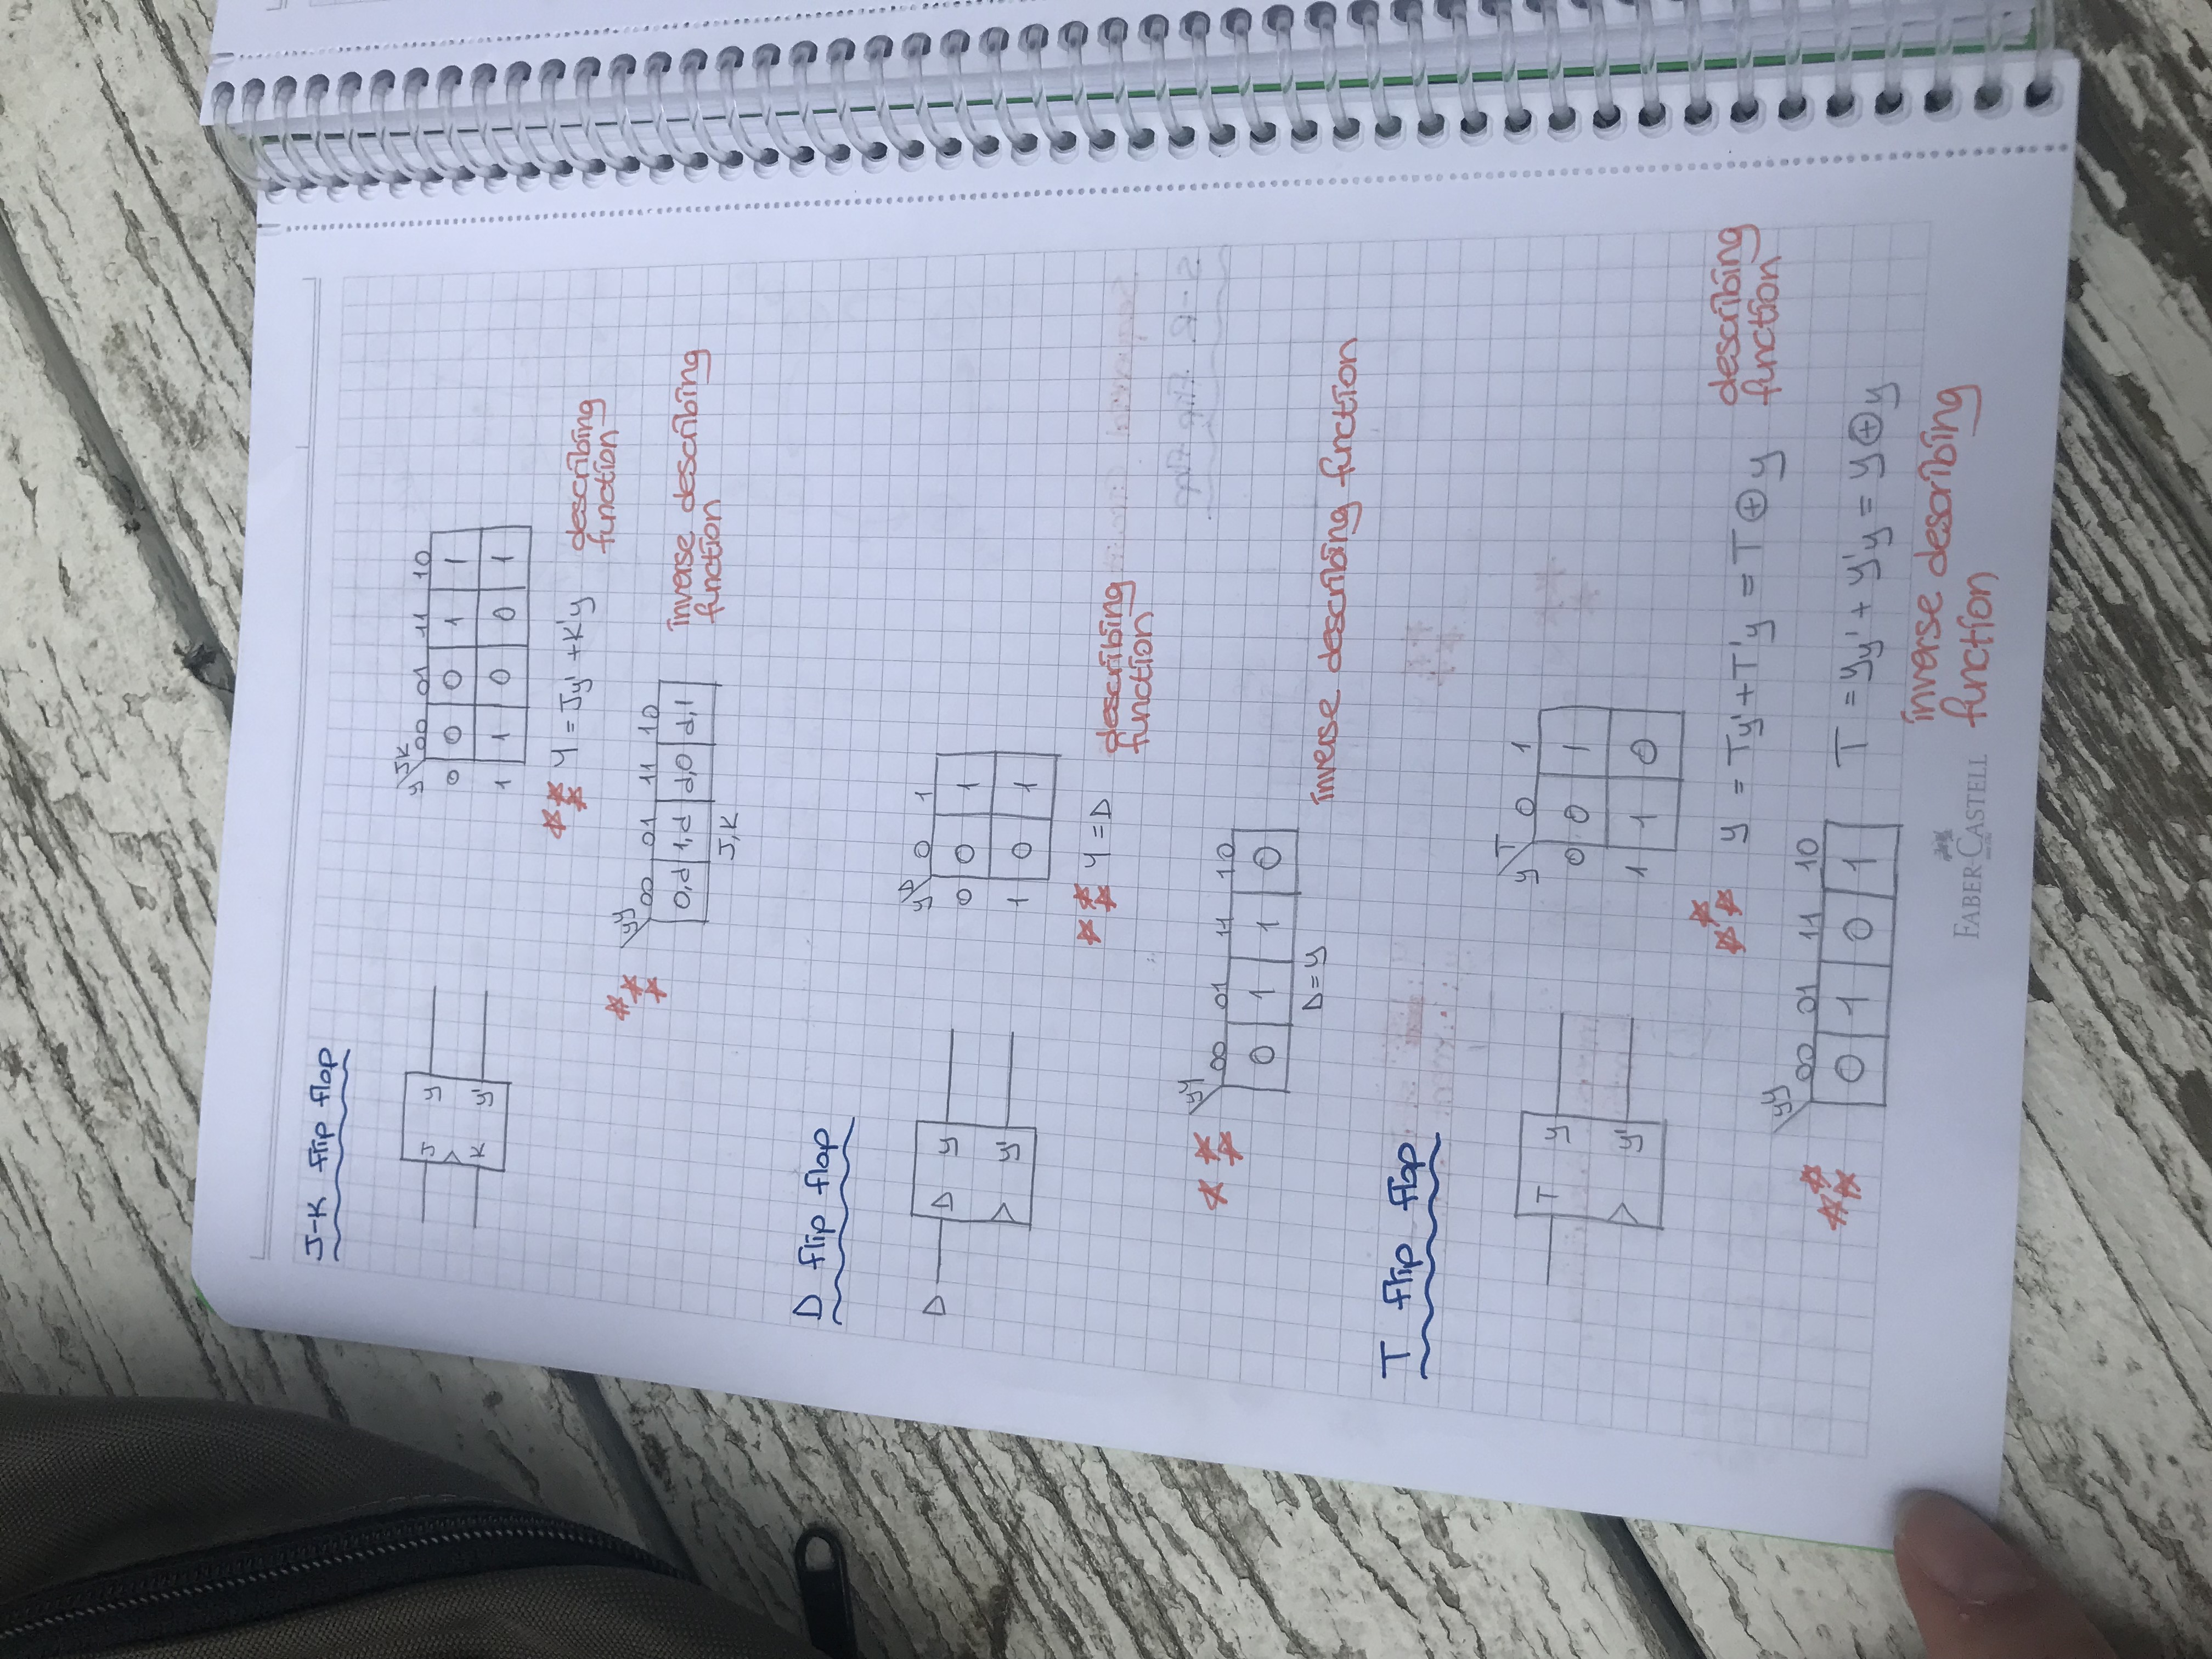 J-K flip flop
J y
K y'
y JK 00 01 11 10
0 0 0 1 1
1 1 0 0 1
Y = Jy' + K'y describing
function
yY 00 01 11 10
0,d 1,d d,0 d,1
J,K
inverse describing
function
D flip flop
D D y
y'
y D 0 1
0 0 1
1 0 1
Y = D describing
function
yY 00 01 11 10
0 1 1 0
D=Y
inverse describing function
T flip flop
T y
y'
y T 0 1
0 0 1
1 1 0
y = Ty' + T'y = T ⊕ y describing
function
yY 00 01 11 10
0 1 0 1
T = Yy' + Y'y = Y ⊕ y
inverse describing
function
FABER-CASTELL